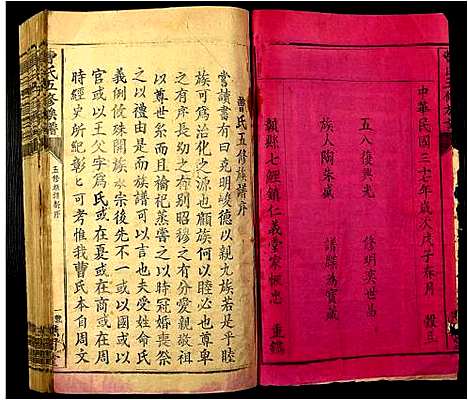 中華民國三十七年歲次戊子春月 穀旦
五八復興光 修明奕世昌
族人陶朱盛 譜牒為寳藏
贛縣七鯉鎮仁義堂 重鐫
曹氏五修族譜序
嘗讀書有曰克明峻德以親九族若是乎睦
族可為治化之源也顧族何以睦必也尊卑
之有序長幼之有別昭穆之有分愛親敬祖
以尊世系而且禴祀蒸嘗以時冠婚喪祭
之以禮由是而族譜可以言也夫受姓命氏
義例攸殊開族承宗後先不一或以國或以
官或以王父字為氏或在夏或在商或在周
時經史所紀彰彰可考惟我曹氏本自周文
曹氏五修族譜
五修族譜新序